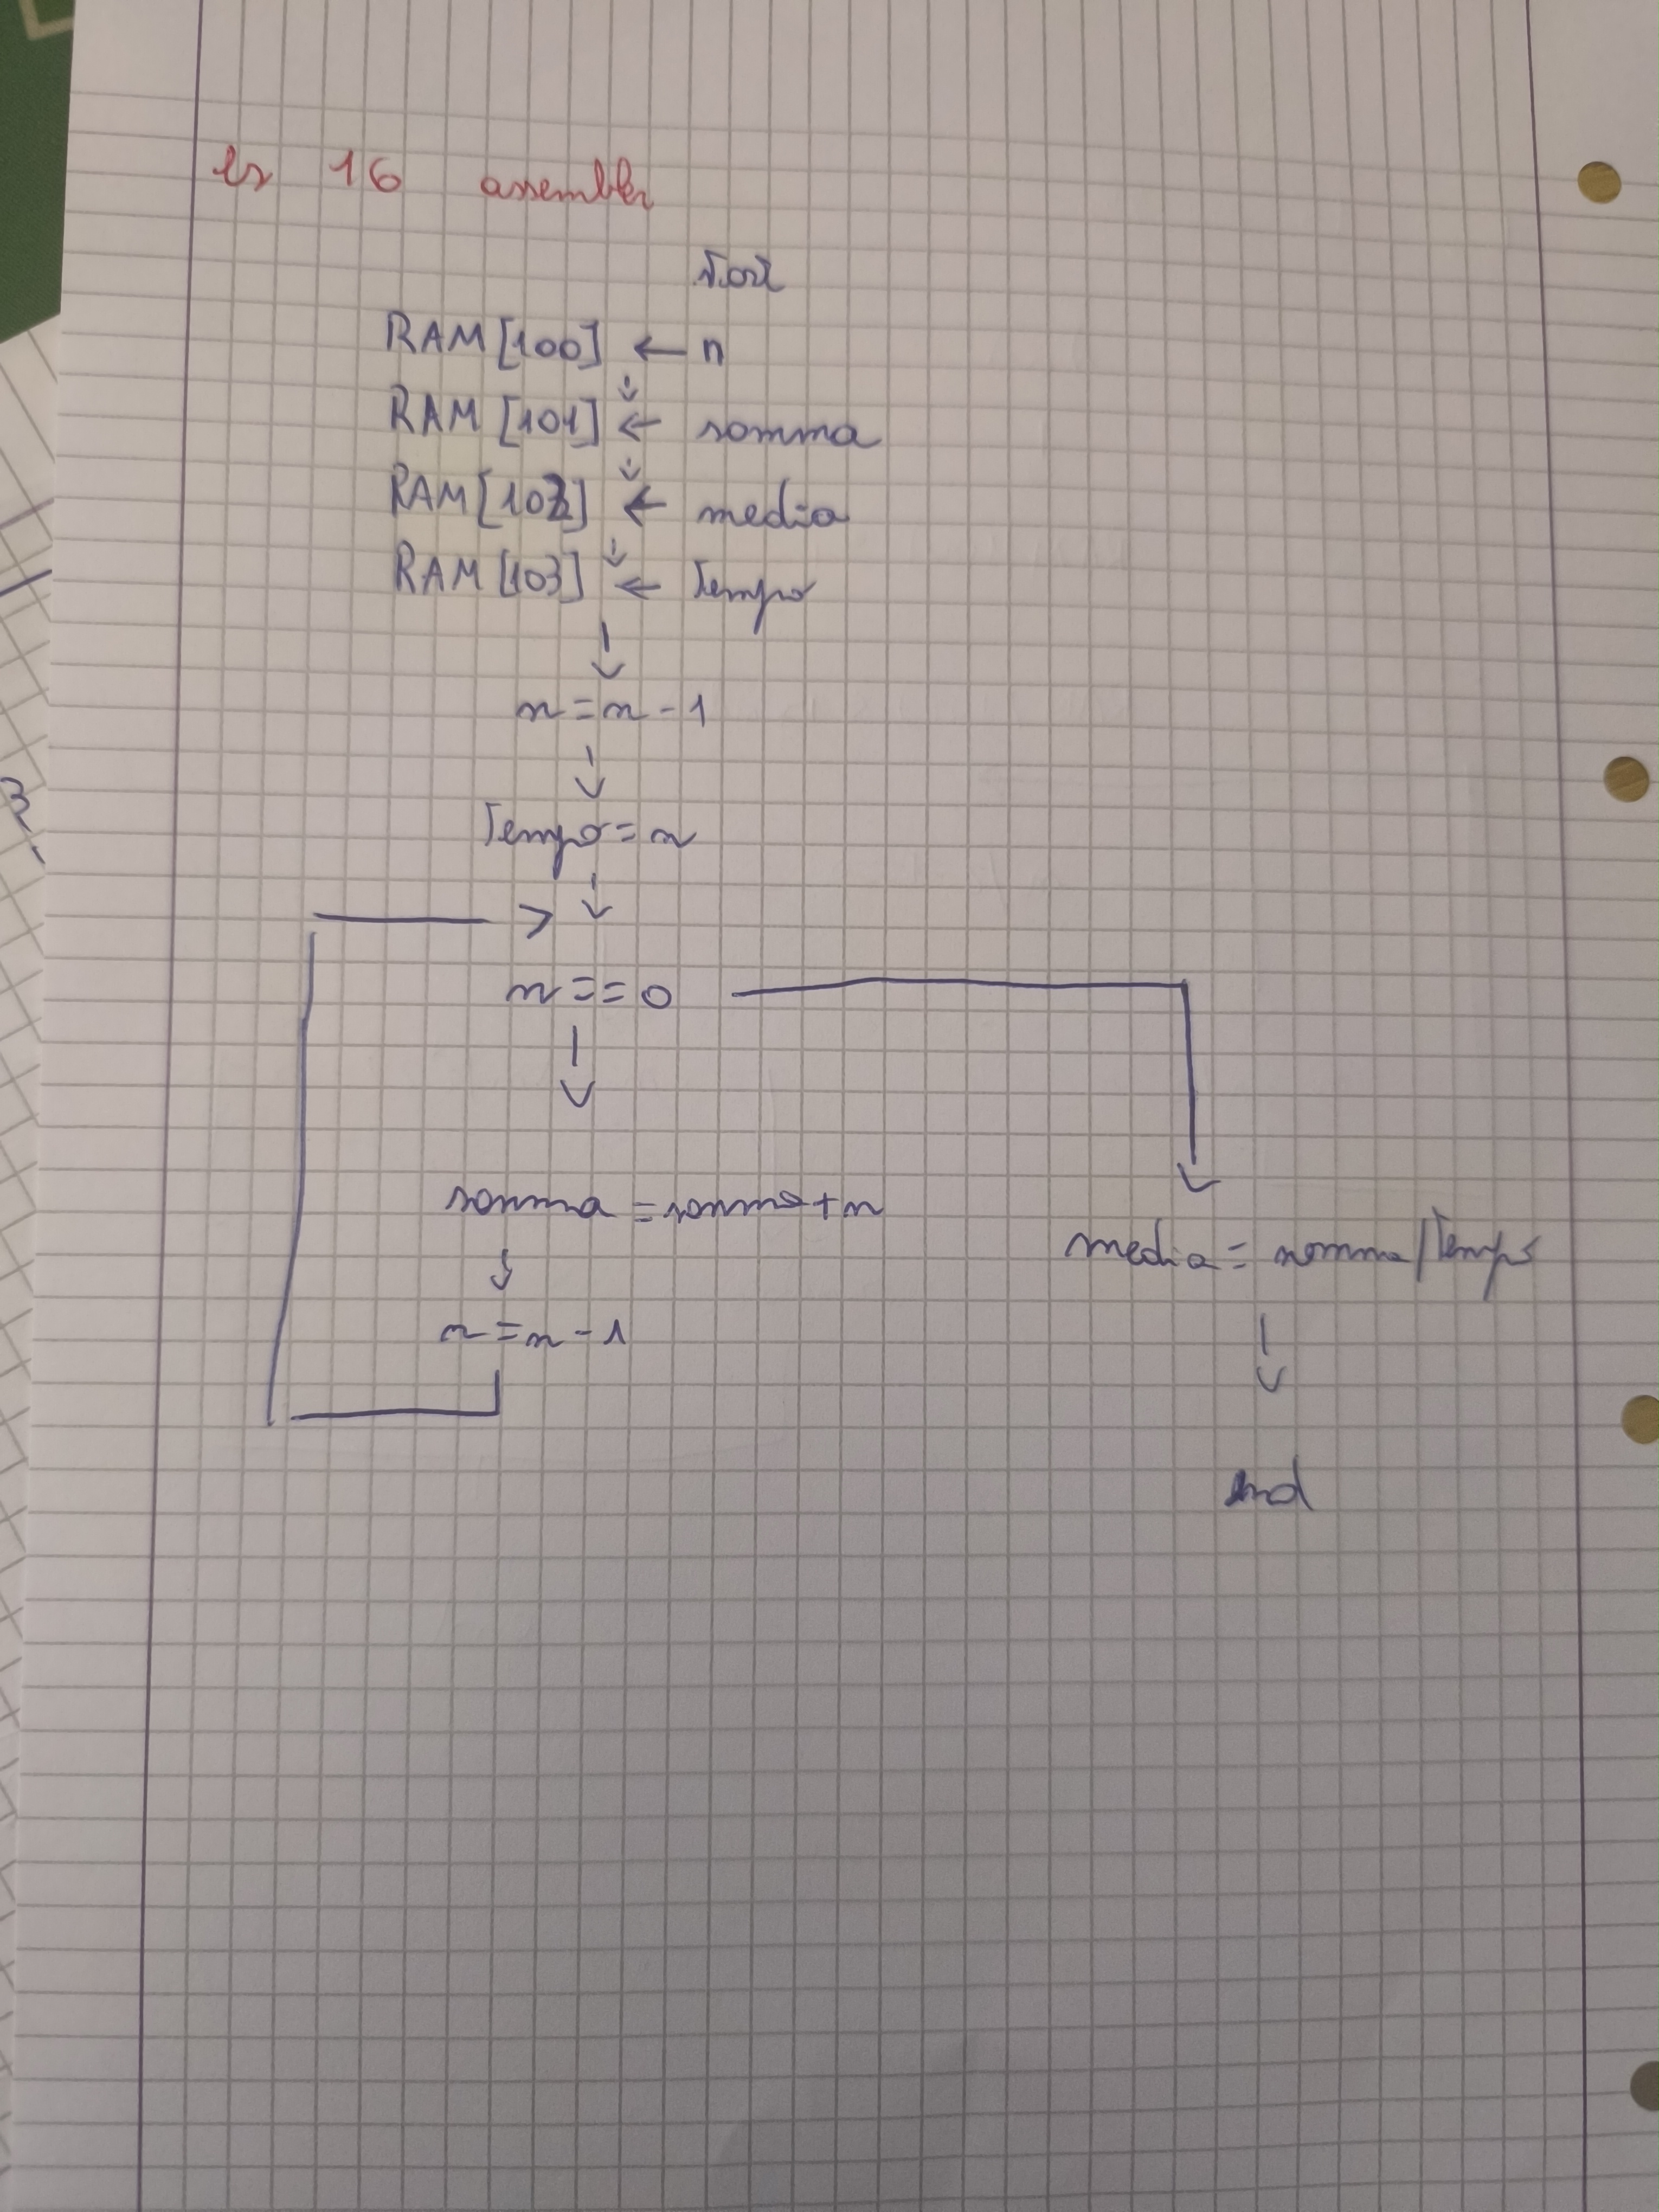 es 16 assembler
Start
RAM [100] ← n
↓
RAM [101] ← somma
↓
RAM [102] ← media
↓
RAM [103] ← Tempo
↓
n = n - 1
↓
Tempo = n
↓
n == 0
↓
somma = somma + n
↓
n = n - 1
media = somma / Tempo
↓
end